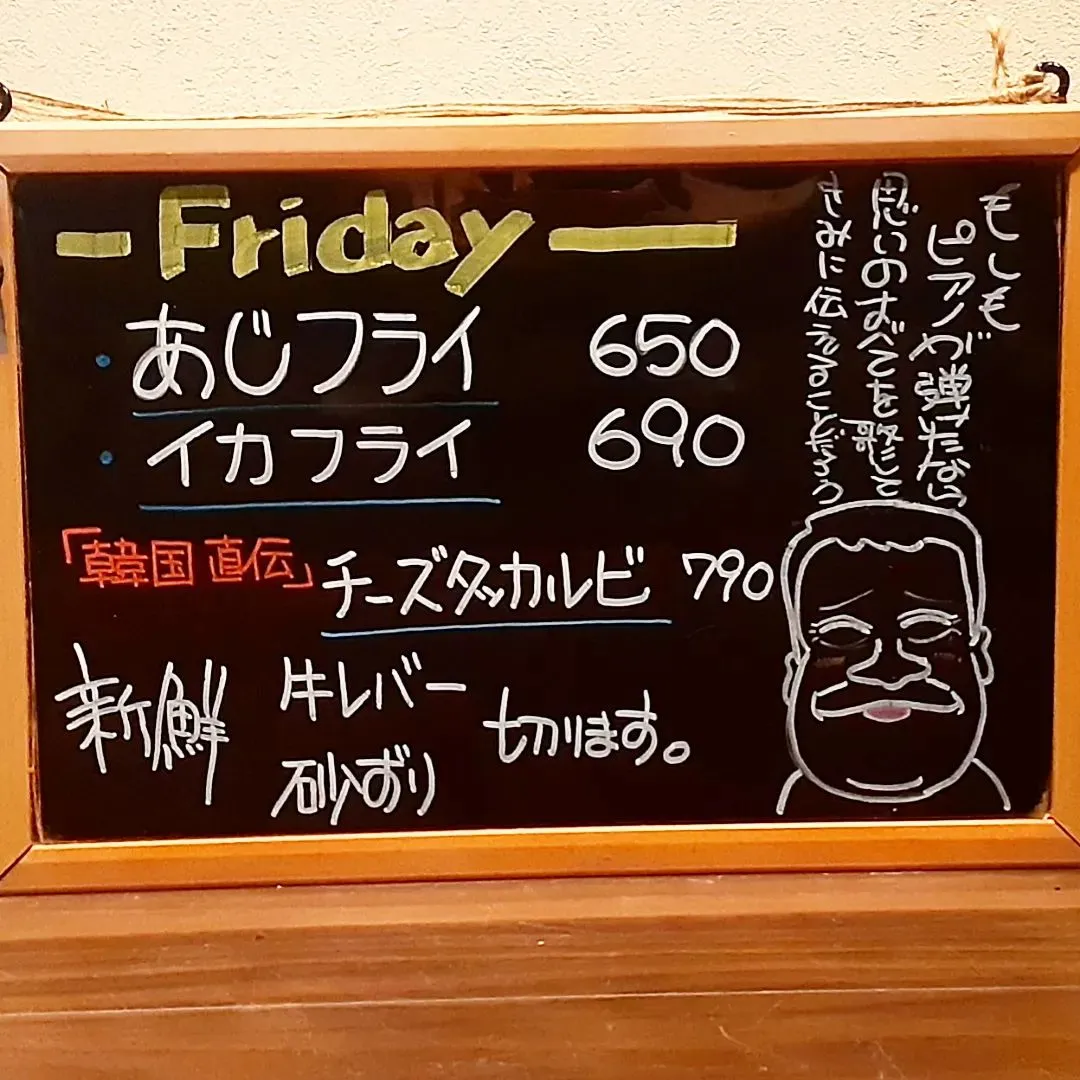 Friday
・あじフライ 650
・イカフライ 690
「韓国直伝」チーズタッカルビ 790
新鮮 牛レバー 砂ずり 切ります。
もしも
ピアノが弾けたなら
思いのすべてを歌にして
きみに伝えることだろう